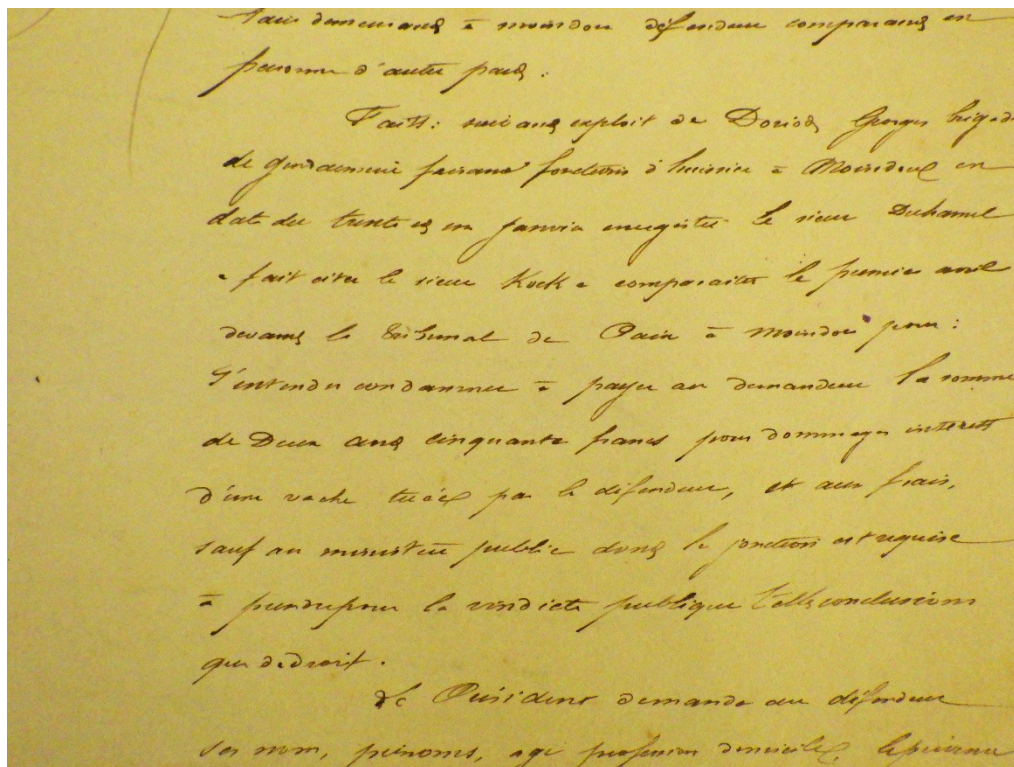 demeurant à Moindou défendeur comparant en
personne d'autre part.
Faits: suivant exploit de Georges brigad
de gendarmerie faisant fonctions d'huissier à Moindou en
date du trente et un janvier enregistré le sieur Duhamel
a fait citer le sieur Kock à comparaitre le premier avril
devant le Tribunal de Paix à Moindou pour:
S'entendre condamner à payer au demandeur la somme
de Deux cent cinquante francs pour dommages intérêts
d'une vache tuée par le défendeur, et aux frais,
sauf au ministère public dont la jonction est requise
à prendre pour la vindicte publique telles conclusions
que de droit.
Le Président demande au défendeur
ses nom, prénoms, age profession domicile,